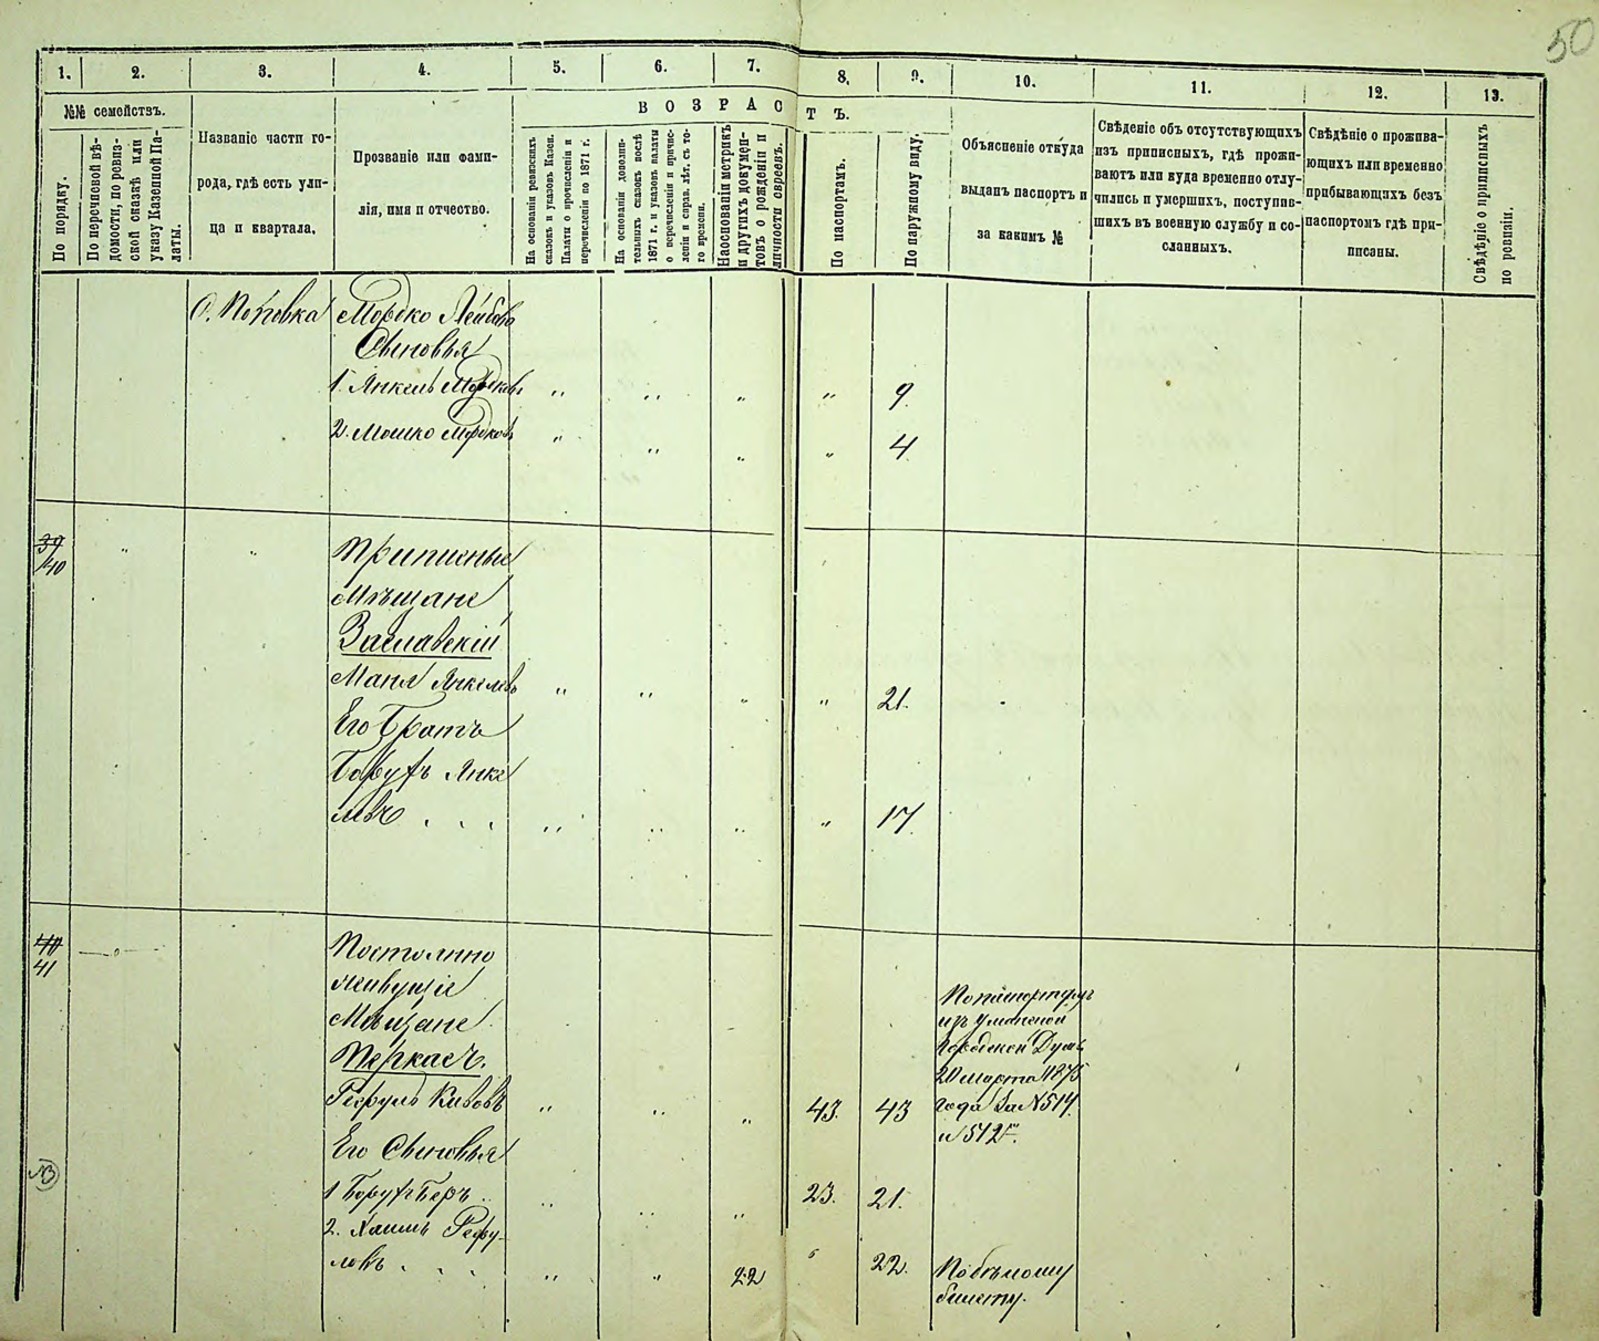 50
1. 2. 3. 4. 5. 6. 7. 8. 9. 10. 11. 12. 13.
№№ семействъ.
По порядку.
По перечневой вѣ-
домости, по ревиз-
ской сказкѣ или
указу Казенной Па-
латы.
Названіе части го-
рода, гдѣ есть ули-
ца и квартала.
Прозваніе или фами-
лія, имя и отчество.
ВОЗРАСТЪ.
На основаніи ревизскихъ
сказокъ и указовъ Казен.
Палаты о причисленіи и
перечисленіи по 1871 г.
На основаніи дополни-
тельныхъ сказокъ послѣ
1871 г. и указовъ палаты
о перечисленіи и причис-
леніи и справ. лѣт. съ то-
го времени.
На основаніи метрикъ
и другихъ докумен-
товъ о рожденіи и
личности евреевъ.
По паспортамъ.
По наружному виду.
Объясненіе откуда
выданъ паспортъ и
за какимъ №
Свѣденіе объ отсутствующихъ
изъ приписныхъ, гдѣ прожи-
ваютъ или куда временно отлу-
чились и умершихъ, поступив-
шихъ въ военную службу и со-
сланныхъ.
Свѣдѣніе о прожива-
ющихъ или временно
прибывающихъ безъ
паспортомъ гдѣ при-
писаны.
Свѣдѣніе о приписныхъ
по ревизіи.
Мордко Лейбовъ
Сыновья
1. Янкель Мордковъ " " " " 9.
2. Мошко Мордковъ " " " " 4
39
40 " " Приписные
Мѣщане
Заславскій
Маня Янкелевъ " " " " 21.
Его Братъ
Борухъ Янке
левъ . . . " " " " 17.
40
41 Постоянно
живущіе
Мѣщане
Черкасъ.
Рефулъ Кивовъ " " " 43. 43
По паспортамъ
изъ Уманской
Городской Думы
20 марта 1875
года За №514
и 512.
Его Сыновья
1 Борухъ Беръ " " " 23. 21.
2. Хаимъ Рефу-
ловъ . . . " " 22 22. По бѣлому
билету.